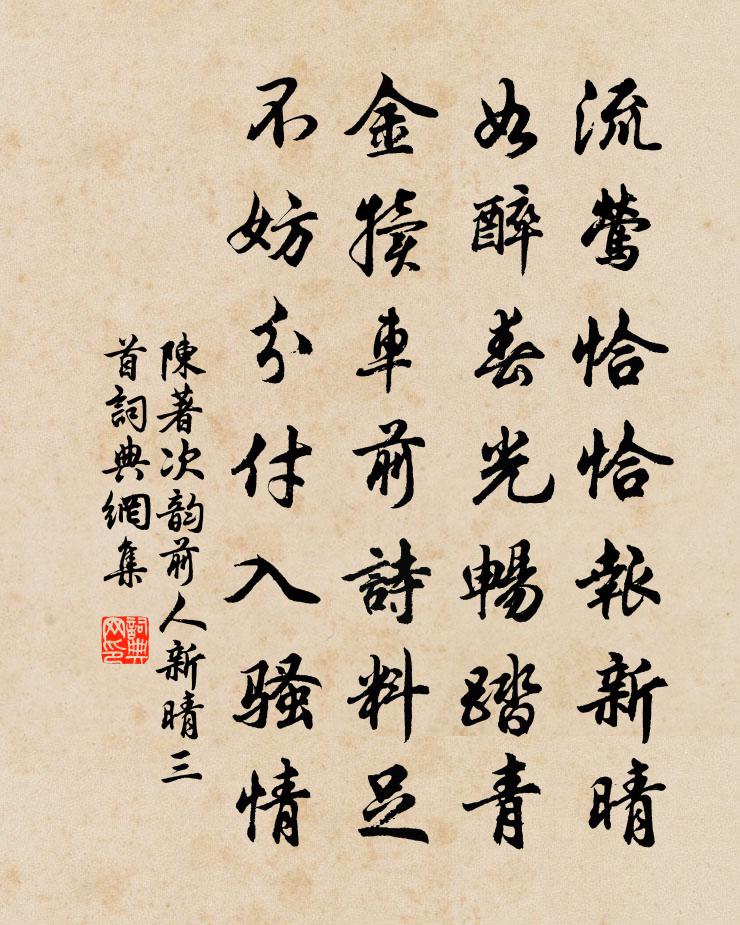 流鶯恰恰報新晴
如醉春光暢踏青
金犢車前詩料足
不妨分付入騷情
陳著次韵前人新晴三
首詞典網集
詞典
网印